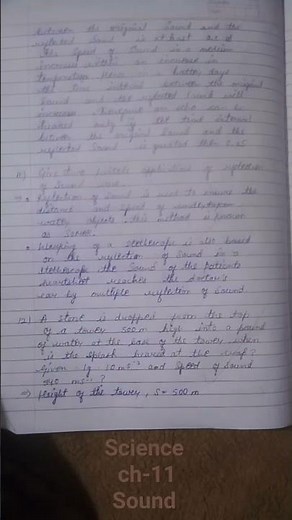 between the original sound and the
reflected sound is at least 0.1 s
The speed of sound in a medium
increase with an increase in
temperature. Hence on a hotter days
the time interval between the original
sound and the reflected sound will
only if the time interval
between the original sound and the
reflected sound is greater than 0.1s
11) Give two applications of reflection
of sound wave.
⇒ • Reflection of sound is used to measure the
distance and speed of underwater
objects. This method is known
as
• Working of a stethoscope is also based
on the reflection of sound in a
stethoscope the sound of the patients
heartbeat reaches the doctors
ear by multiple reflection of sound.
12) A stone is dropped from the top
of a tower 500 m high into a pond
of water at the base of the tower. when
is the splash heard at the
Given g = 10 ms⁻² and speed of sound
340 ms⁻¹ ?
⇒ Height of the tower, S = 500 m
Science
ch-11
Sound